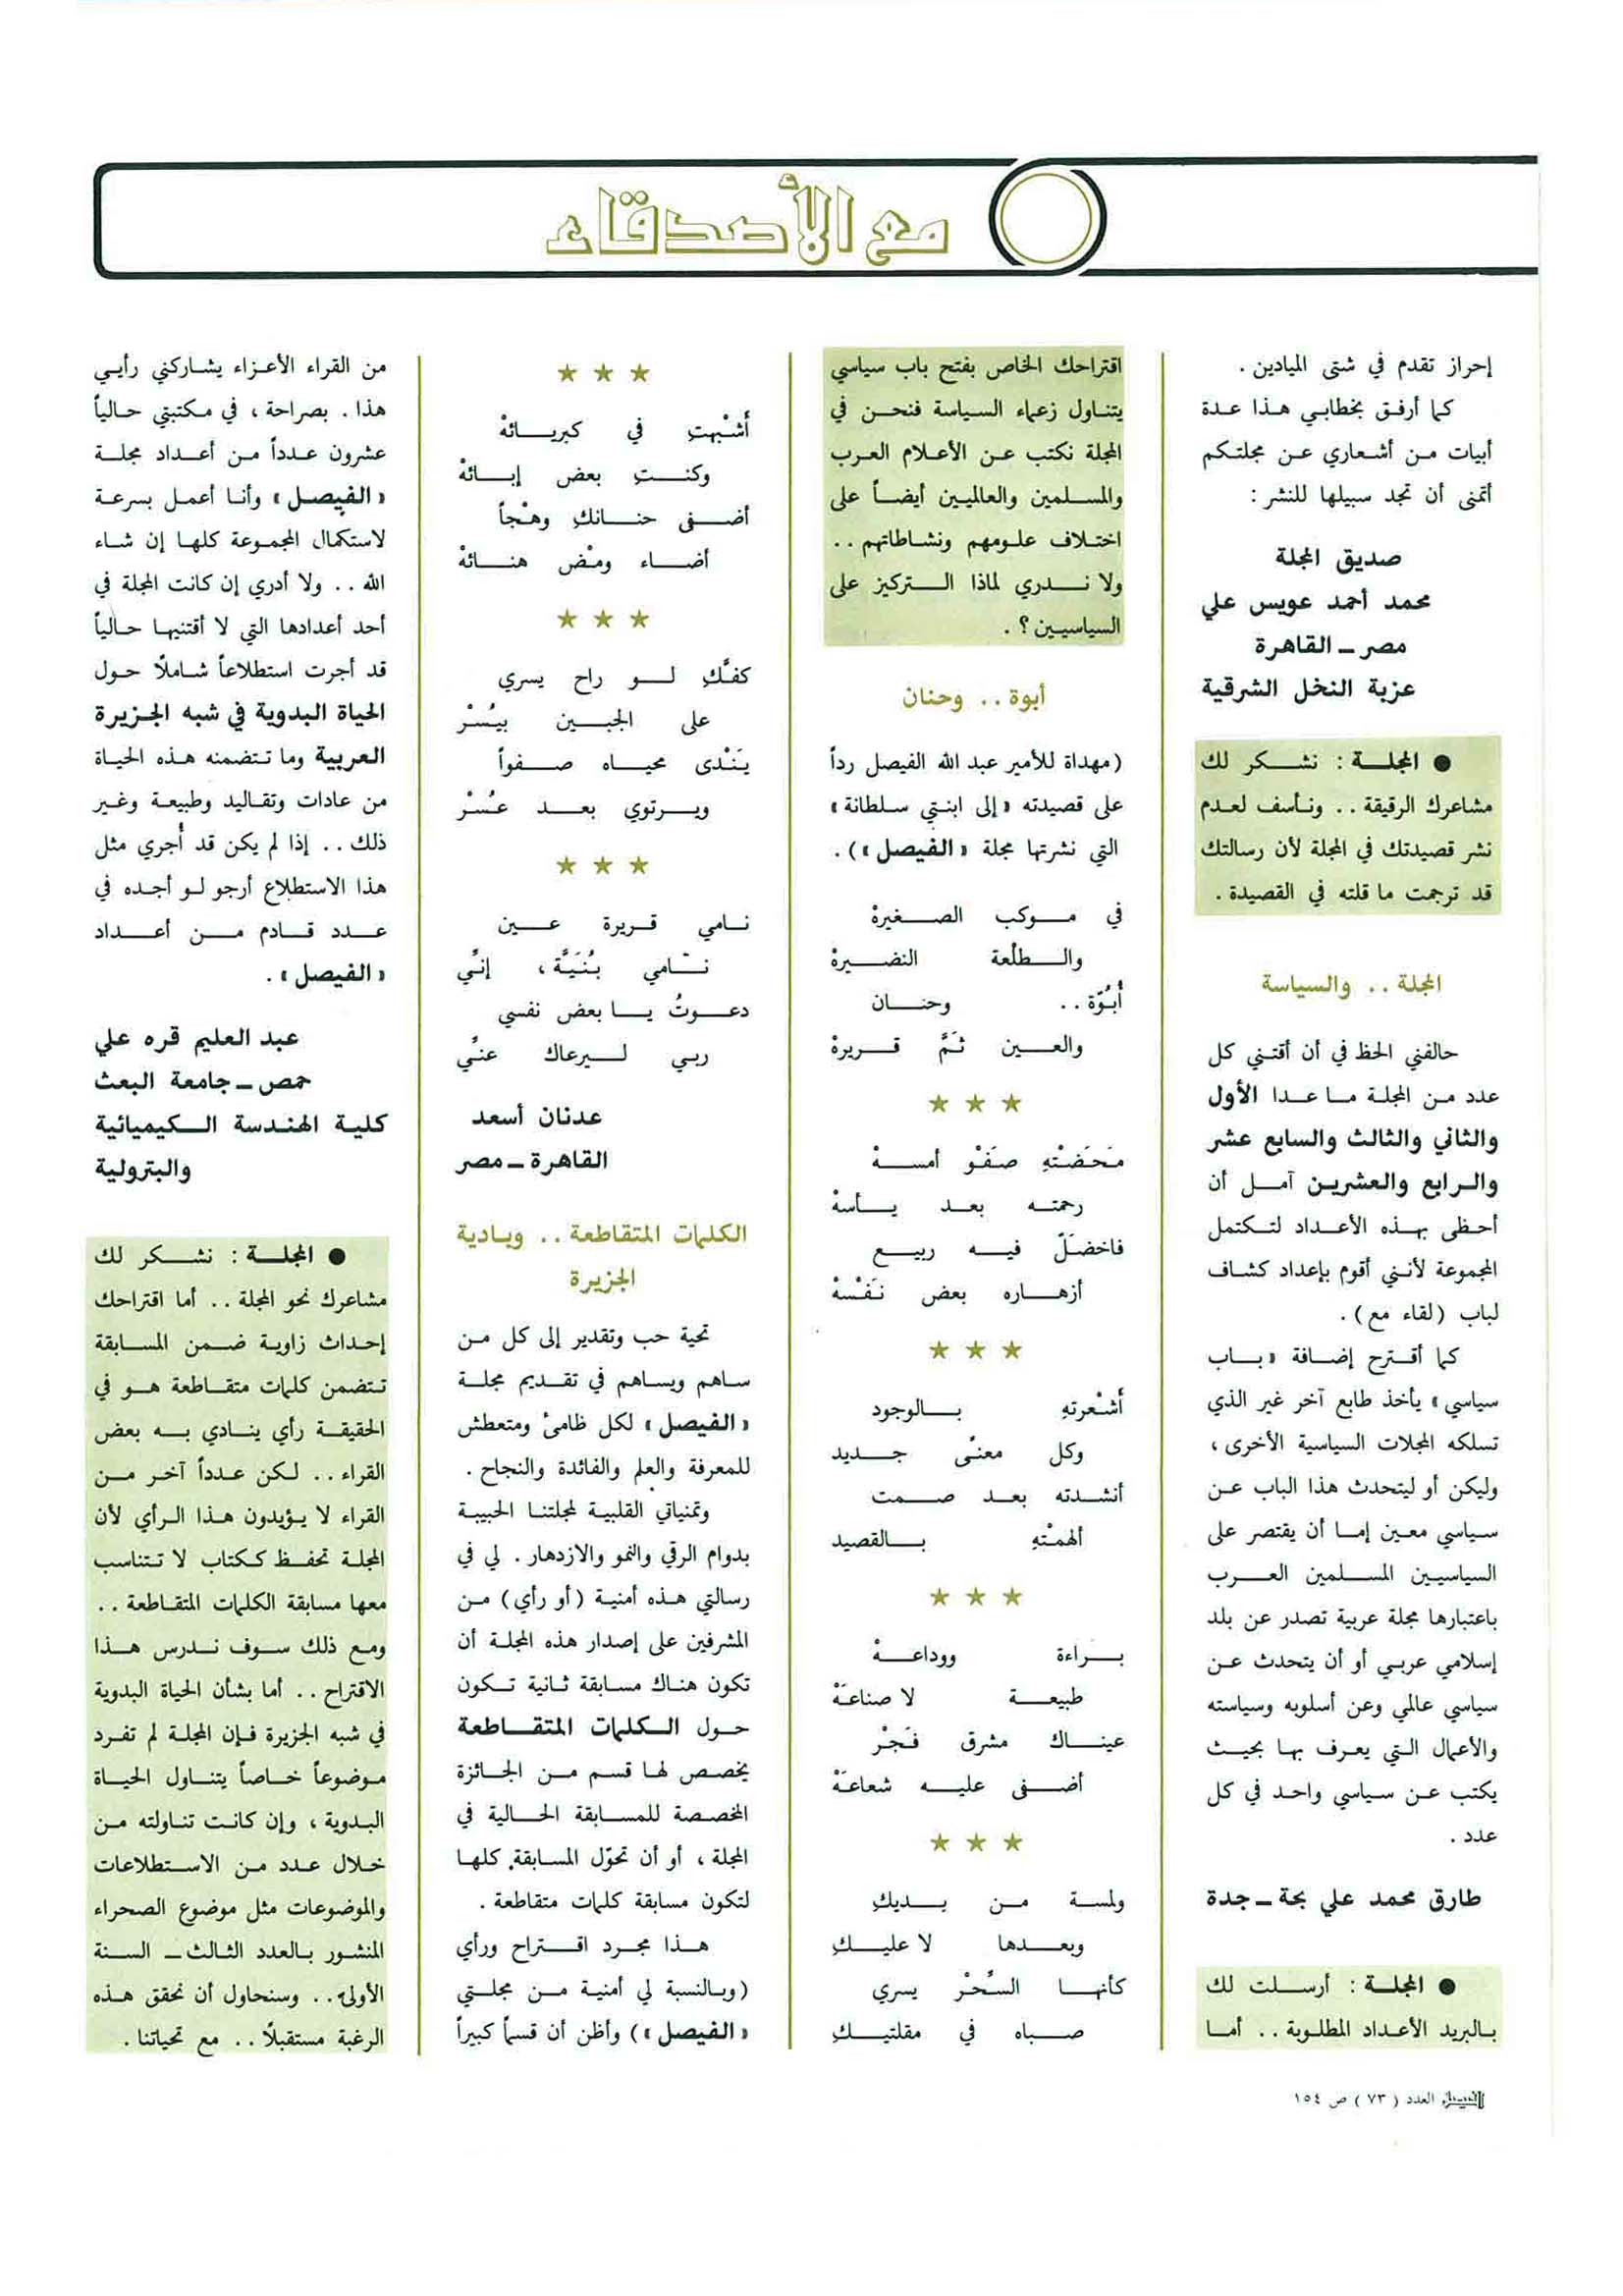 مع الأصدقاء
إحراز تقدم في شتى الميادين .
كما أرفق بخطابي هذا عدة
أبيات من أشعاري عن مجلتكم
أتمنى أن تجد سبيلها للنشر :
صديق المجلة
محمد أحمد عويس علي
مصر ـ القاهرة
عزبة النخل الشرقية
● المجلة : نشكر لك
مشاعرك الرقيقة .. ونأسف لعدم
نشر قصيدتك في المجلة لأن رسالتك
قد ترجمت ما قلته في القصيدة .
المجلة .. والسياسة
حالفني الحظ في أن أقتني كل
عدد من المجلة ما عدا الأول
والثاني والثالث والسابع عشر
والرابع والعشرين آمل أن
أحظى بهذه الأعداد لتكتمل
المجموعة لأنني أقوم بإعداد كشاف
لباب (لقاء مع) .
كما أقترح إضافة « باب
سياسي » يأخذ طابع آخر غير الذي
تسلكه المجلات السياسية الأخرى ،
وليكن أو ليتحدث هذا الباب عن
سياسي معين إما أن يقتصر على
السياسيين المسلمين العرب
باعتبارها مجلة عربية تصدر عن بلد
إسلامي عربي أو أن يتحدث عن
سياسي عالمي وعن أسلوبه وسياسته
والأعمال التي يعرف بها بحيث
يكتب عن سياسي واحد في كل
عدد .
طارق محمد علي بحة ـ جدة
● المجلة : أرسلت لك
بالبريد الأعداد المطلوبة .. أما
اقتراحك الخاص بفتح باب سياسي
يتناول زعماء السياسة فنحن في
المجلة نكتب عن الأعلام العرب
والمسلمين والعالميين أيضاً على
اختلاف علومهم ونشاطاتهم ..
ولا ندري لماذا التركيز على
السياسيين ؟ .
أبوة .. وحنان
(مهداة للأمير عبد الله الفيصل رداً
على قصيدته « إلى ابنتي سلطانة »
التي نشرتها مجلة « الفيصل ») .
في موكب الصغيرهْ
والطلْعة النضيرهْ
أُبُوّة .. وحنان
والعين ثَمَّ قريرهْ
★ ★ ★
مَحَضَتْهِ صَفْو أمسهْ
رحمته بعد يأسهْ
فاخضَلّ فيه ربيع
أزهاره بعض نَفْسْهْ
★ ★ ★
أشْعرتهِ بالوجود
وكل معنىً جديد
أنشدته بعد صمت
ألهمْتهِ بالقصيد
★ ★ ★
بَراءة ووداعهْ
طبيعة لا صناعَهْ
عيناك مشرق فَجْر
أضفى عليه شعاعَهْ
★ ★ ★
ولمسة من يديكِ
وبعدها لا عليكِ
كأنها السِّحْر يسري
صباه في مقلتيكِ
★ ★ ★
أشْبهتِ في كبريائهْ
وكنتِ بعض إبائهْ
أضفى حنانكِ وهْجاً
أضاء ومْض هنائهْ
★ ★ ★
كفّكِ لو راح يسري
على الجبين بيُسْر
يَنْدى محياه صفواً
ويرتوي بعد عُسْر
★ ★ ★
نامي قريرة عين
نامي بُنَيَّة ، إنّي
دعوتُ يا بعض نفسي
ربي ليرعاك عنّي
عدنان أسعد
القاهرة ـ مصر
الكلمات المتقاطعة .. وبادية
الجزيرة
تحية حب وتقدير إلى كل من
ساهم ويساهم في تقديم مجلة
« الفيصل » لكل ظامئ ومتعطش
للمعرفة والعلم والفائدة والنجاح .
وتمنياتي القلبية لمجلتنا الحبيبة
بدوام الرقي والنمو والازدهار . لي في
رسالتي هذه أمنية (أو رأي) من
المشرفين على إصدار هذه المجلة أن
تكون هناك مسابقة ثانية تكون
حول الكلمات المتقاطعة
يخصص لها قسم من الجائزة
المخصصة للمسابقة الحالية في
المجلة ، أو أن تحوّل المسابقة كلها
لتكون مسابقة كلمات متقاطعة .
هذا مجرد اقتراح ورأي
(وبالنسبة لي أمنية من مجلتي
« الفيصل ») وأظن أن قسماً كبيراً
من القراء الأعزاء يشاركني رأيي
هذا . بصراحة ، في مكتبتي حالياً
عشرون عدداً من أعداد مجلة
« الفيصل » وأنا أعمل بسرعة
لاستكمال المجموعة كلها إن شاء
الله .. ولا أدري إن كانت المجلة في
أحد أعدادها التي لا أقتنيها حالياً
قد أجرت استطلاعاً شاملًا حول
الحياة البدوية في شبه الجزيرة
العربية وما تتضمنه هذه الحياة
من عادات وتقاليد وطبيعة وغير
ذلك .. إذا لم يكن قد أجري مثل
هذا الاستطلاع أرجو لو أجده في
عدد قادم من أعداد
« الفيصل » .
عبد العليم قره علي
حمص ـ جامعة البعث
كلية الهندسة الكيميائية
والبترولية
● المجلة : نشكر لك
مشاعرك نحو المجلة .. أما اقتراحك
إحداث زاوية ضمن المسابقة
تتضمن كلمات متقاطعة هو في
الحقيقة رأي ينادي به بعض
القراء .. لكن عدداً آخر من
القراء لا يؤيدون هذا الرأي لأن
المجلة تحفظ ككتاب لا تتناسب
معها مسابقة الكلمات المتقاطعة ..
ومع ذلك سوف ندرس هذا
الاقتراح .. أما بشأن الحياة البدوية
في شبه الجزيرة فإن المجلة لم تفرد
موضوعاً خاصاً يتناول الحياة
البدوية ، وإن كانت تناولته من
خلال عدد من الاستطلاعات
والموضوعات مثل موضوع الصحراء
المنشور بالعدد الثالث ـ السنة
الأولى .. وسنحاول أن نحقق هذه
الرغبة مستقبلًا .. مع تحياتنا .
الفيصل العدد ( ٧٣ ) ص ١٥٤